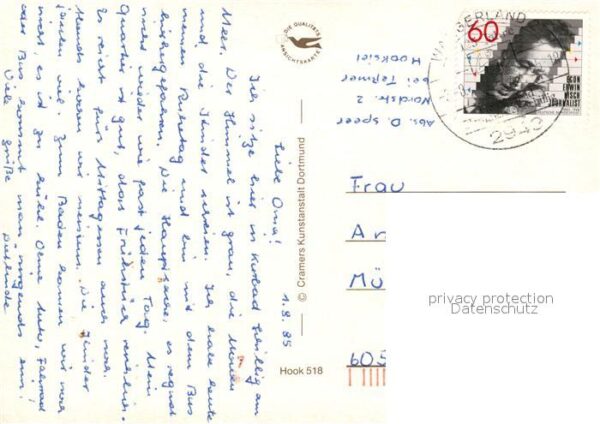 1.8.85
Liebe Oma!
Ich sitze hier in Horbad Schillig am
Meer. Der Himmel ist grau, die Möwen
und die Kinder schreien. Ich habe heute
meinen Ruhetag und bin mit dem Bus
hierhergefahren. Die Hauptsache, es regnet
nicht wieder wie fast jeden Tag. Mein
Quartier ist gut, das Frühstück reichlich.
Es reicht fürs Mittagessen auch noch.
Abends
Zum Baden kamen wir noch
nicht, es ist zu kühl. Ohne Auto, Fahrrad
oder Bus kommt man nirgends hin!
Viele Grüße
DIE QUALITÄTS
ANSICHTSKARTE
© Cramers Kunstanstalt Dortmund
Hook 518
Abs. D. Speer
bei Tehmer
Nordstr. 2
Hooksiel
WANGERLAND
2943
60
EGON
ERWIN
KISCH
JOURNALIST
Frau
Ar
Mü
605
privacy protection
Datenschutz